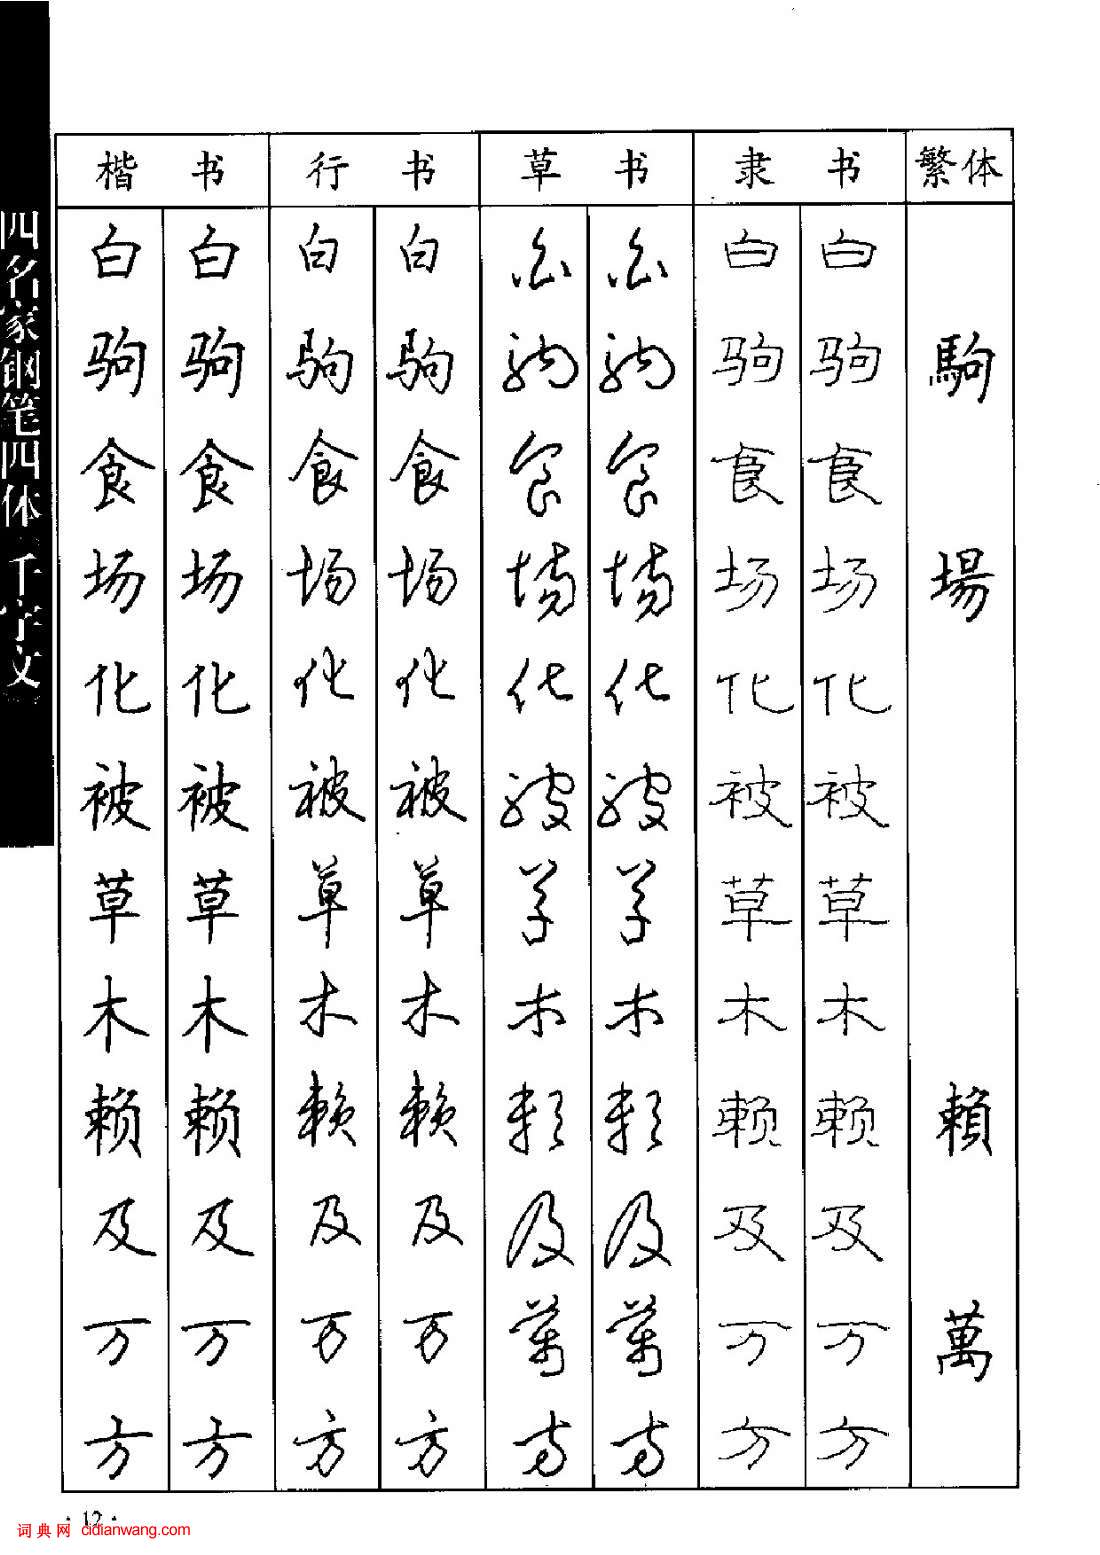 四名家钢笔四体千字文
楷书 行书 草书 隶书 繁体
白 白 白 白 白 白 白 白
驹 驹 驹 驹 驹 驹 驹 驹 駒
食 食 食 食 食 食 食 食
场 场 场 场 场 场 场 场 場
化 化 化 化 化 化 化 化
被 被 被 被 被 被 被 被
草 草 草 草 草 草 草 草
木 木 木 木 木 木 木 木
赖 赖 赖 赖 赖 赖 赖 赖 賴
及 及 及 及 及 及 及 及
万 万 万 万 萬 萬 万 万 萬
方 方 方 方 方 方 方 方
·12·
词典网 cidianwang.com